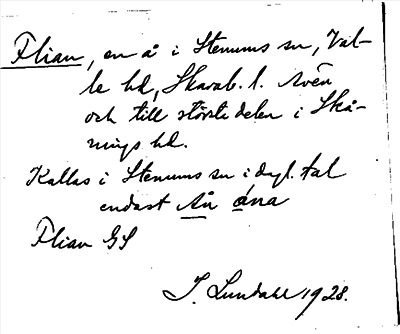 Flian, en å i Stenums sn, Val-
le hd, Skarab. l. Även
och till största delen i Skå-
nings hd.
Kallas i Stenums sn i dagl. tal
endast Ån åna
Flian GS
I. Lundahl 1928.